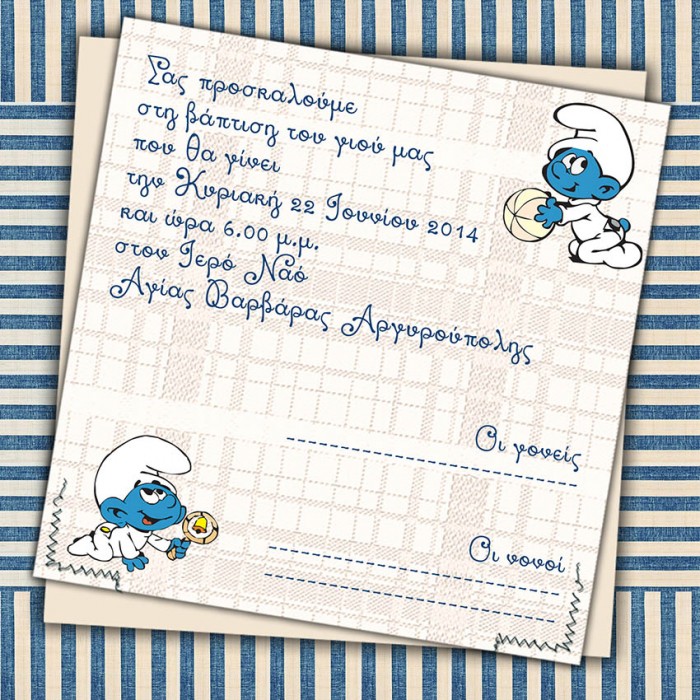 Σας προσκαλούμε
στη βάπτιση του γιού μας
που θα γίνει
την Κυριακή 22 Ιουνίου 2014
και ώρα 6.00 μ.μ.
στον Ιερό Ναό
Αγίας Βαρβάρας Αργυρούπολης
Οι γονείς
Οι νονοί